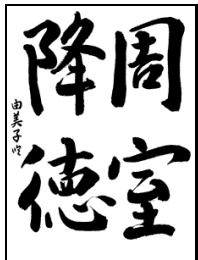 周室
降德
由美子